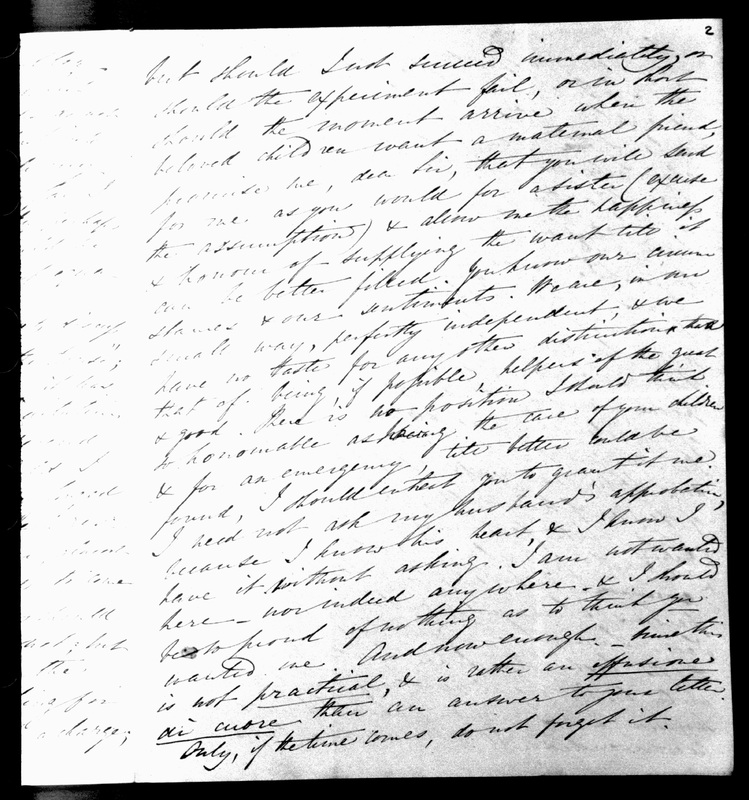 2
but should I not succeed immediately, or
should the experiment fail, or in short
should the moment arrive when the
beloved children want a maternal friend,
promise me, dear Sir, that you will send
for me as you would for a sister (excuse
the assumption) & allow me the happiness
& honour of supplying the want till it
can be better filled. You know our circum
stances & our sentiments. We are, in our
small way, perfectly independent, & we
have no taste for any other distinction than
that of being, if possible, helpers of the great
& good. There is no position I should think
so honourable as having the care of your children
& for an emergency, till better could be
found, I should entreat you to grant it me.
I need not ask my husband's approbation,
because I know his heart, & I know I
have it without asking. I am not wanted
here – nor indeed anywhere – & I should
be so proud of nothing as to think you
wanted me. And now enough – since this
is not practical, & is rather an effusione
di cuore than an answer to your letter.
Only, if the time comes, do not forget it.
the